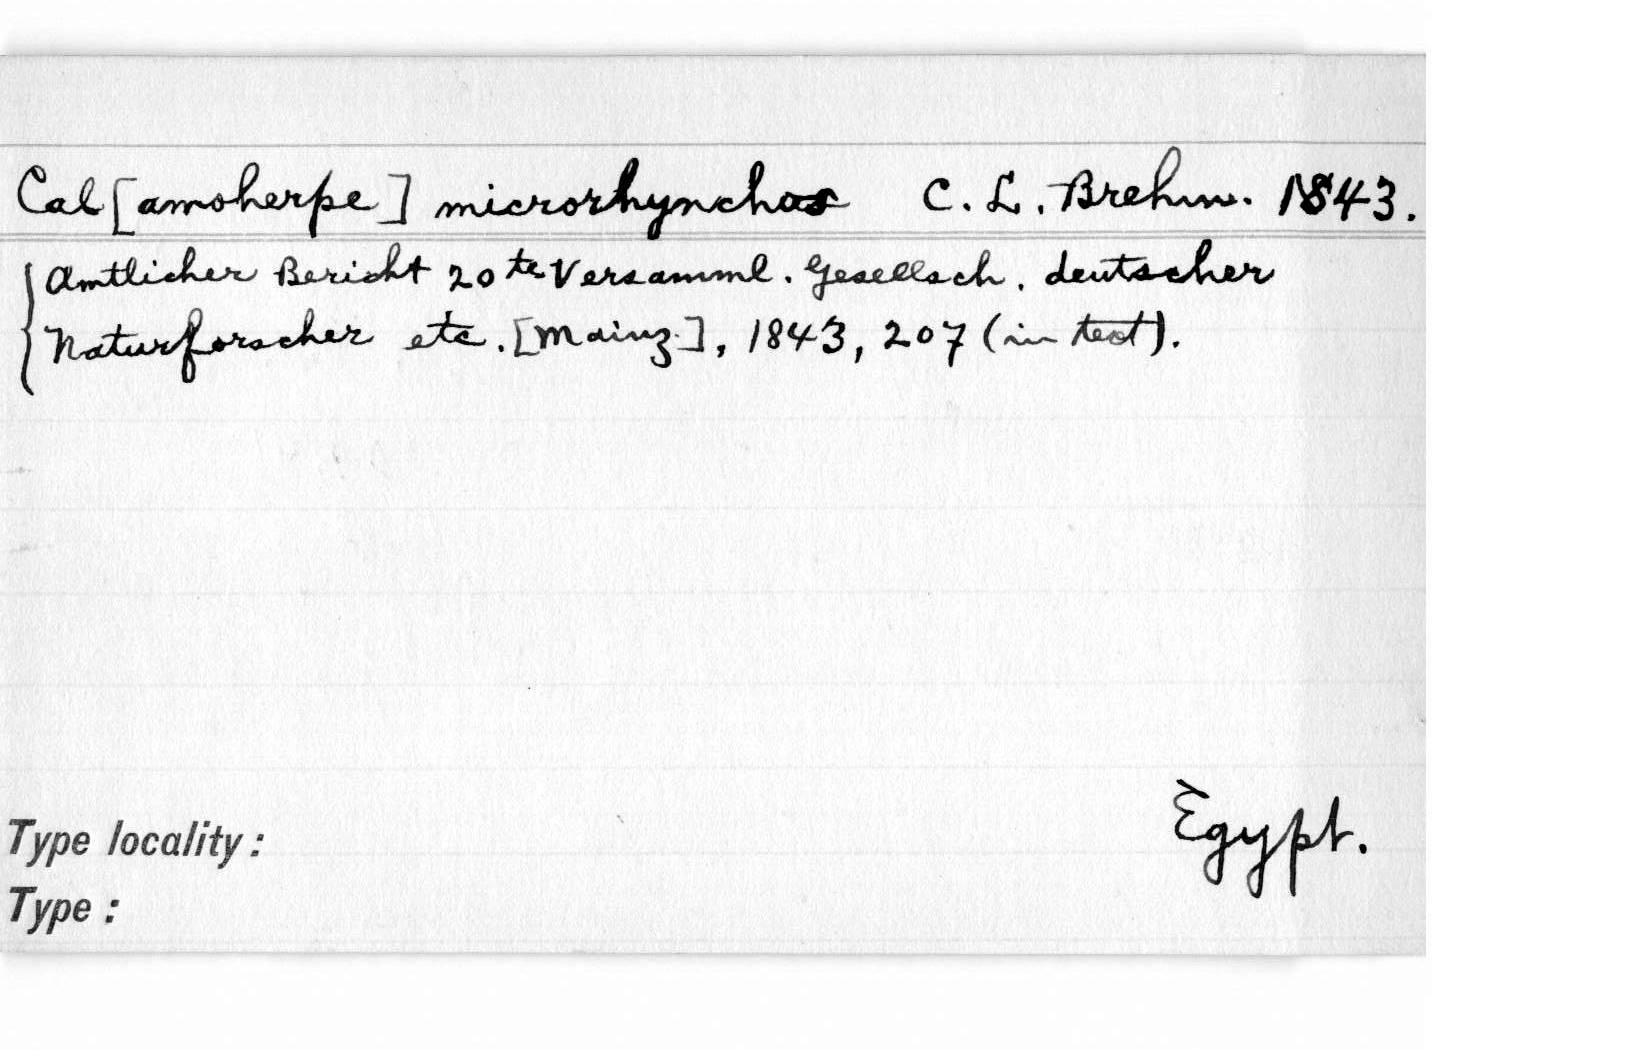 Cal[amoherpe] microrhynchos C. L. Brehm. 1843.
Amtlicher Bericht 20te Versamml. Gesellsch. deutscher
Naturforscher etc. [Mainz.], 1843, 207 (in text).
Egypt.
Type locality:
Type: